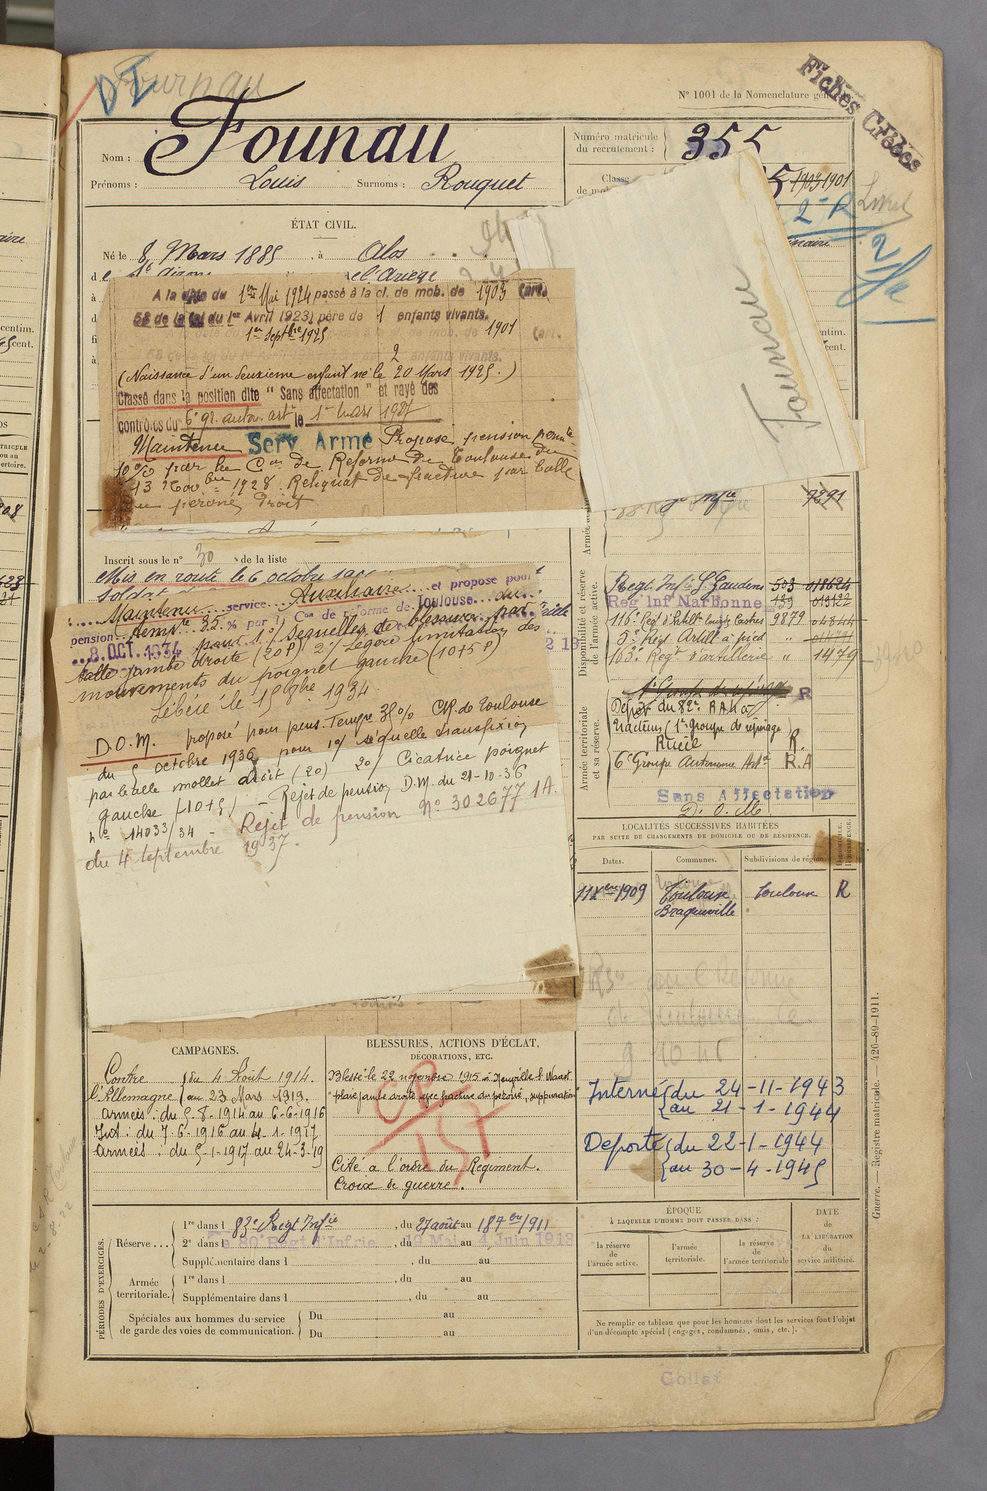 DI
Fournau
N° 1001 de la Nomenclature
Fiches Créées
Nom : Founau
Prénoms : Louis Surnoms : Rouquet
Numéro matricule du recrutement : 355
Classe
1903 1901
2e R
Livret
ÉTAT CIVIL.
Né le 8 Mars 1885, à Alos
A la date du 1er Mai 1924 passé à la cl. de mob. de 1903
58 de la loi du 1er Avril 1923) père de 1 enfants vivants.
1er Septbre 1925 1901
2 enfants vivants.
(Naissance d'un deuxième enfant né le 20 Mars 1925.)
Classé dans la position dite "Sans affectation" et rayé des
contrôles du 6e gr. auton. arte le 1er mars 1927
Maintenu Serv Armé Propose pension permte
10% par la Con de Réforme de Toulouse du
13 Novbre 1928. Reliquat de fracture par balle
du péroné droit
Founau
9291
Inscrit sous le n° 30 de la liste
Mis en route le 6 octobre
Soldat
Maintenu service Auxiliaire et propose pour
pension temp 35 % par la Con de réforme de Toulouse du
8 OCT. 1934 pour 1°/ Séquelles de blessure par
balle jambe droite (20%) 2°/ Légère limitation des
mouvements du poignet gauche (10+5%)
Libéré le 15 8bre 1934
D.O.M. proposé pour pens. Tempre 35% CR. de Toulouse
du 5 octobre 1936 pour 1°/ séquelle transfixion
par balle mollet droit (20) 2°/ Cicatrice poignet
gauche (10+5) - Rejet de pension D.M. du 21-10-36
N° 14033/34 - Rejet de pension N° 302677 1A.
du 4 septembre 1937.
Disponibilité et réserve de l'armée active.
Regt Infie St Gaudens 503 018624
Reg Inf Narbonne 159 013122
116e Reg d'Artill Lourde Castres 2879 04844
5e Reg Artill à pied "
163e Regt d'artillerie " 1479
Armée territoriale et sa réserve.
R
Dépôt du 82e R.A.L.
Tracteurs (1er Groupe de repérage)
Rueil R.
6e Groupe Autonome Artie R.A
Sans Affectation
D. O. M
LOCALITÉS SUCCESSIVES HABITÉES
PAR SUITE DE CHANGEMENTS DE DOMICILE OU DE RÉSIDENCE.
Dates. Communes. Subdivisions de région
11 Xbre 1909 Toulouse Toulouse R
Braqueville
CAMPAGNES.
Contre du 4 Août 1914.
l'Allemagne au 23 Mars 1919.
Armées : du 5-8-1914 au 6-6-1916
Int : du 7-6-1916 au 4-1-1917
Armées : du 5-1-1917 au 24-3-19
BLESSURES, ACTIONS D'ÉCLAT,
DÉCORATIONS, ETC.
Blessé le 22 novembre 1915 à Neuville St Waast
"plaie jambe droite avec fracture du péroné, suppuration"
CR
157
Cité à l'ordre du Régiment.
Croix de guerre.
Interné du 24-11-1943
au 21-1-1944
Déporté du 22-1-1944
au 30-4-1945
PÉRIODES D'EXERCICES.
Réserve... 1re dans l 83e Regt Infie, du 27 août au 18 7bre 1911
2e dans l e 80e Regt d'Infrie, du 19 Mai au 4 Juin 1913
Supplémentaire dans l , du au
Armée territoriale. 1re dans l , du au
Supplémentaire dans l , du au
Spéciales aux hommes du service de garde des voies de communication. Du au
Du au
ÉPOQUE
À LAQUELLE L'HOMME DOIT PASSER DANS :
la réserve de l'armée active.
l'armée territoriale.
la réserve de l'armée territoriale
DATE de LA LIBÉRATION du service militaire.
Ne remplir ce tableau que pour les hommes dont les services font l'objet
d'un décompte spécial (engagés, condamnés, omis, etc.).
Guerre. — Registre matricule. — 426-89-1911.